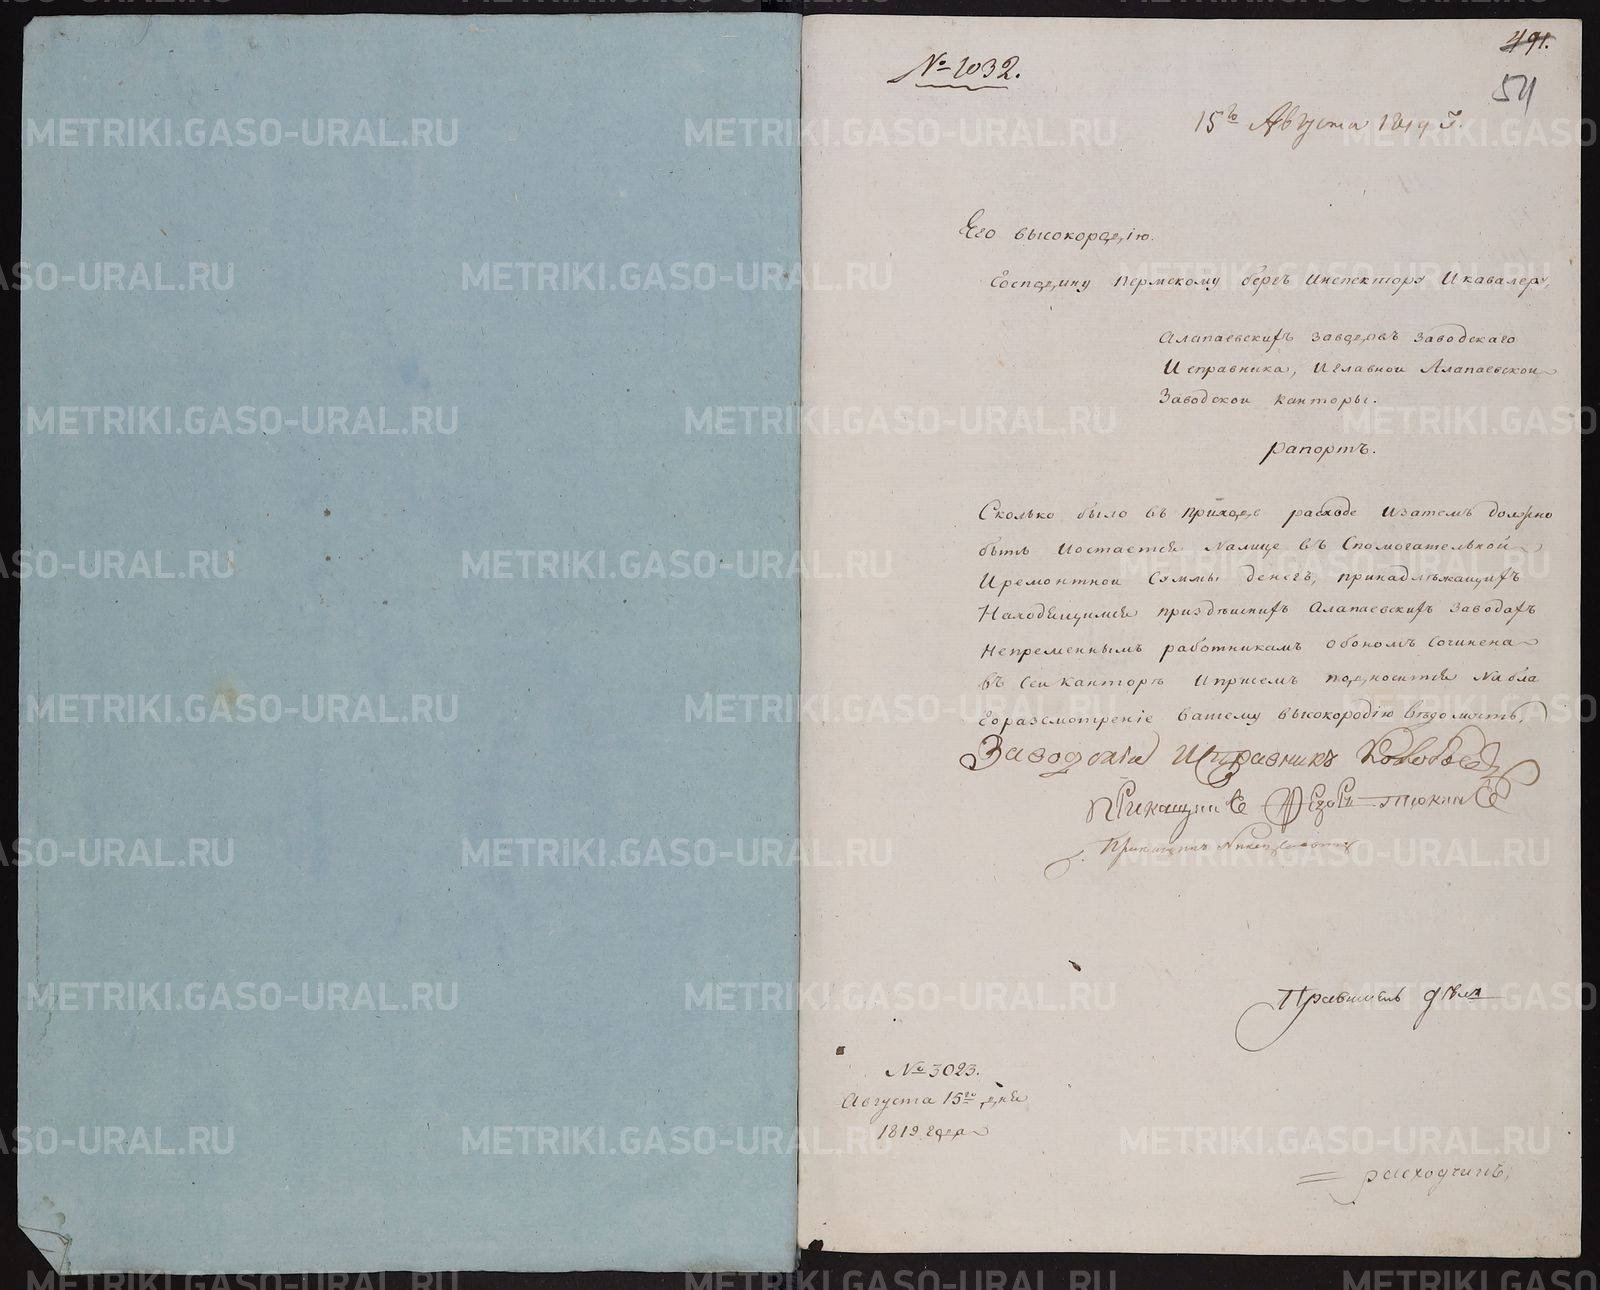 491.
54
№ 1032.
15го Августа 1819 г.
Его высокородію.
Господину пермскому бергъ инспектору и кавалеру,
Алапаевскихъ заводовъ заводскаго
исправника, и главной Алапаевской
заводской канторы.
рапортъ.
Сколько было въ приходе расходе и затемъ должно
быть и остается налице въ Спомогательной
и ремонтной суммы денегъ, принадлѣжащихъ
находящимся приздѣшнихъ Алапаевскихъ заводахъ
непременнымъ работникамъ обономъ сочинена
въ сей канторѣ и присемъ подносится на бла
горазсмотреніе вашему высокородію вѣдомость,
Заводскій Исправникъ
Прикащикъ
Прикащикъ
Правитель дѣла
№ 3023.
Августа 15го дня
1819 года
METRIKI.GASO-URAL.RU